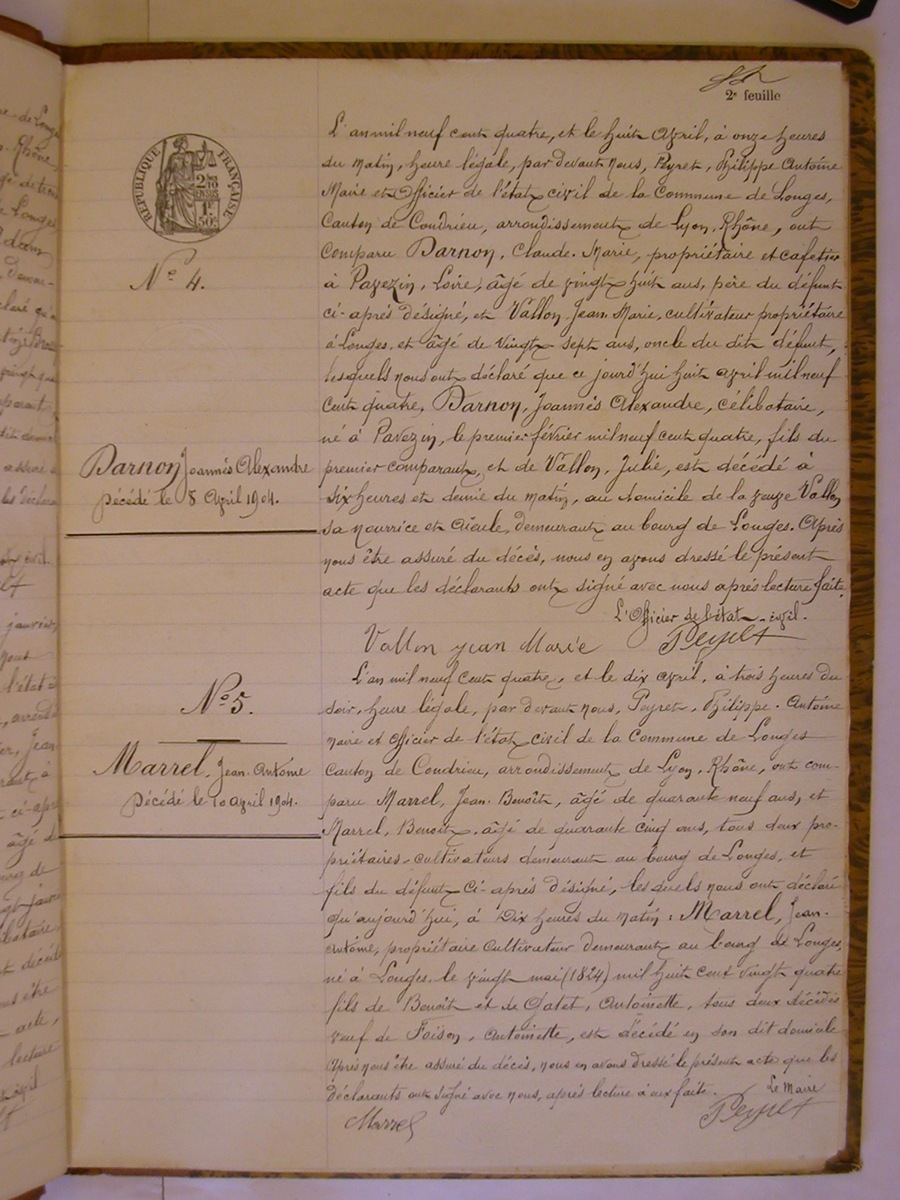 2e feuille
RÉPUBLIQUE FRANÇAISE
N° 4.
Darnon Joannès Alexandre
Décédé le 8 Avril 1904.
L'an mil neuf cent quatre, et le huit Avril, à onze heures
du matin, heure légale, par devant Nous, Peyret, Philippe Antoine
Maire et Officier de l'état civil de la Commune de Longes,
Canton de Condrieu, arrondissement de Lyon, Rhône, ont
comparu Darnon, Claude-Marie, propriétaire et cafetier
à Pavezin, Loire, âgé de vingt huit ans, père du défunt
ci-après désigné, et Vallon Jean Marie, cultivateur propriétaire
à Longes, et âgé de vingt sept ans, oncle du dit défunt,
lesquels nous ont déclaré que ce jourd'hui huit avril mil neuf
cent quatre, Darnon, Joannès Alexandre, célibataire,
né à Pavezin, le premier février mil neuf cent quatre, fils du
premier comparant, et de Vallon, Julie, est décédé à
six heures et demie du matin, au domicile de la veuve Vallon
sa nourrice et aïeule, demeurant au bourg de Longes. Après
nous être assuré du décès, nous en avons dressé le présent
acte que les déclarants ont signé avec nous après lecture faite.
L'Officier de l'état-civil.
Vallon jean Marie Peyret
N° 5.
Marrel, Jean-Antoine
Décédé le 10 avril 1904.
L'an mil neuf cent quatre, et le dix avril, à trois heures du
soir, heure légale, par devant nous, Peyret, Philippe-Antoine
maire et Officier de l'état civil de la Commune de Longes
Canton de Condrieu, arrondissement de Lyon, Rhône, ont com-
paru Marrel, Jean-Benoît, âgé de quarante neuf ans, et
Marrel, Benoît, âgé de quarante cinq ans, tous deux pro-
priétaires-cultivateurs demeurant au bourg de Longes, et
fils du défunt ci-après désigné, lesquels nous ont déclaré
qu'aujourd'hui, à Dix heures du matin, Marrel, Jean-
Antoine, propriétaire cultivateur demeurant au bourg de Longes
né à Longes, le vingt mai (1824) mil huit cent vingt quatre
fils de Benoît et de Gatet, Antoinette, tous deux décédés
veuf de Foison, Antoinette, est décédé en son dit domicile
Après nous être assuré du décès, nous en avons dressé le présent acte que les
déclarants ont signé avec nous, après lecture à eux faite. Le Maire
Marrel Peyret